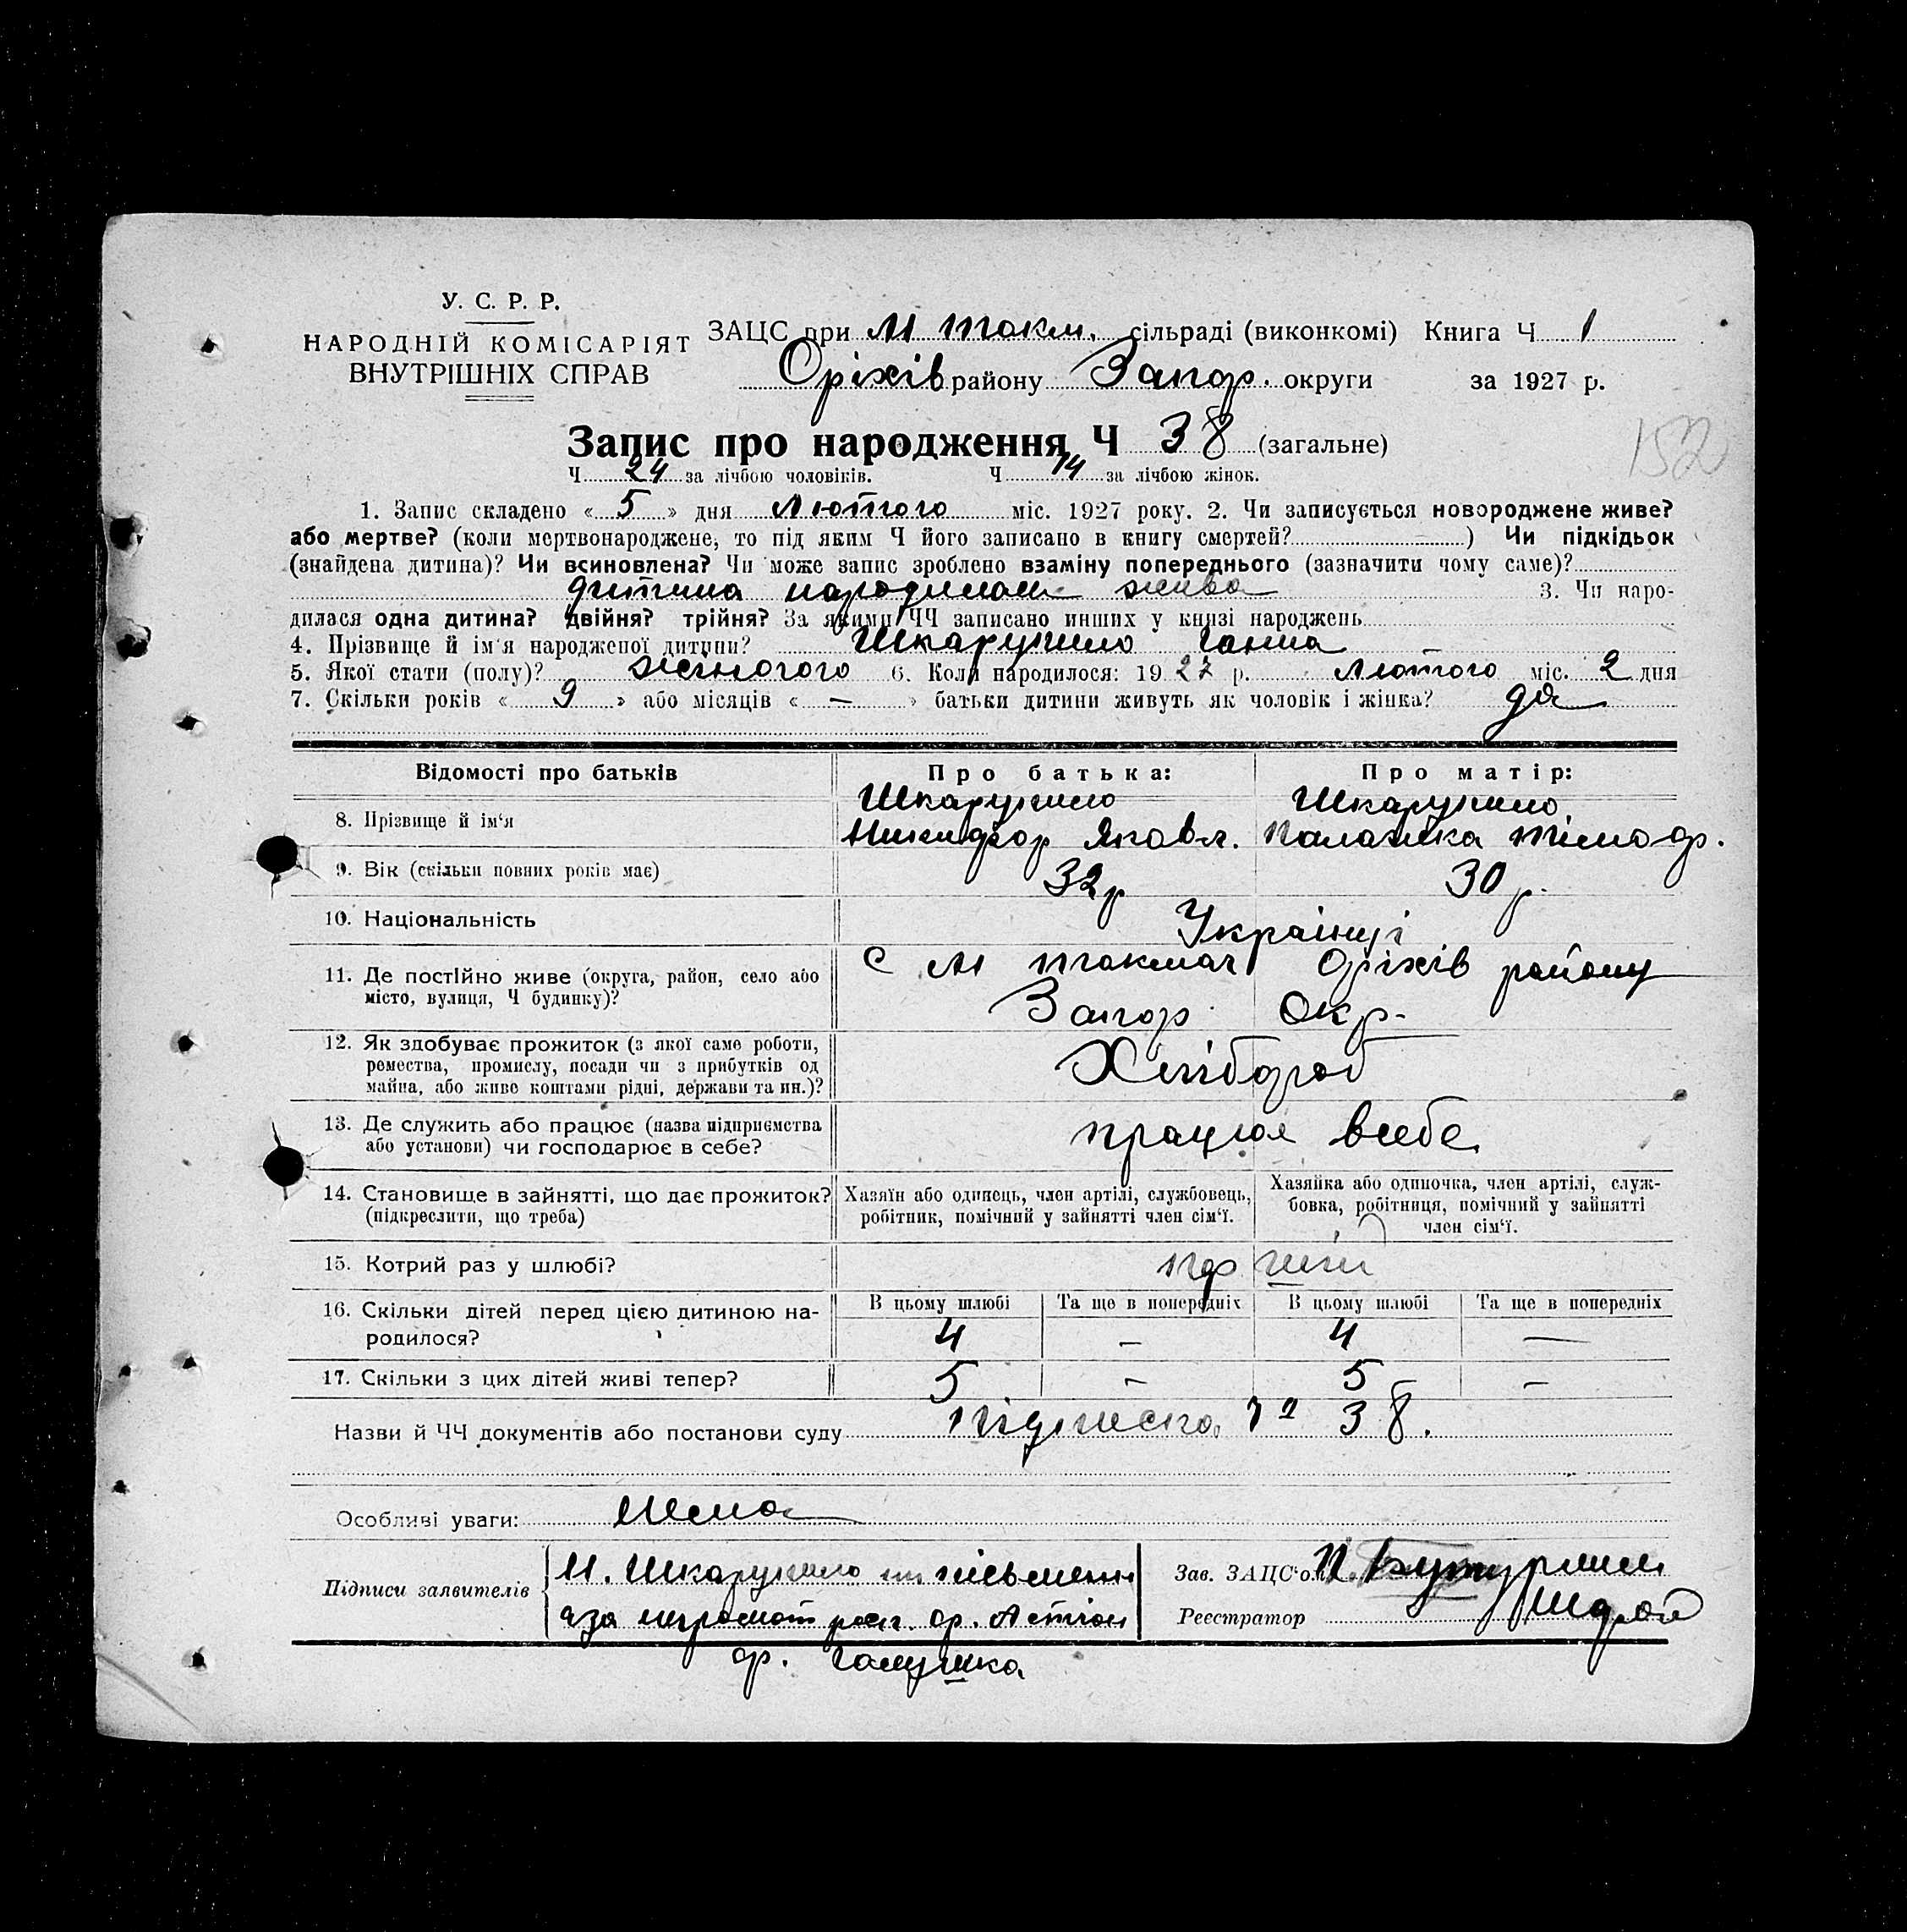 У. С. Р. Р.
НАРОДНІЙ КОМІСАРІЯТ
ВНУТРІШНІХ СПРАВ
ЗАЦС при М Токм. сільраді (виконкомі) Книга Ч 1
Оріхів району Запор. округи за 1927 р.
152
Запис про народження Ч 38 (загальне)
Ч 24 за лічбою чоловіків. Ч 14 за лічбою жінок.
1. Запис складено « 5 » дня Лютого міс. 1927 року. 2. Чи записується новороджене живе?
або мертве? (коли мертвонароджене, то під яким Ч його записано в книгу смертей? ) Чи підкідьок
(знайдена дитина)? Чи всиновлена? Чи може запис зроблено взаміну попереднього (зазначити чому саме)?
дитина народилась жива 3. Чи наро-
дилася одна дитина? двійня? трійня? За якими ЧЧ записано инших у книзі народжень
4. Прізвище й ім'я народженої дитини? Шкарупило Ганна
5. Якої стати (полу)? жіночого 6. Коли народилося: 1927 р. Лютого міс. 2 дня
7. Скільки років « 9 » або місяців « — » батьки дитини живуть як чоловік і жінка? да
Відомості про батьків Про батька: Про матір:
8. Прізвище й ім'я Шкарупило Шкарупило
Никифор Яковл. Палажка Тімоф.
9. Вік (скільки повних років має) 32 р 30 р.
10. Національність Українці
11. Де постійно живе (округа, район, село або С М Токмач Оріхів району
місто, вулиця, Ч будинку)? Запор Окр.
12. Як здобуває прожиток (з якої саме роботи,
ремества, промислу, посади чи з прибутків од Хлібороб
майна, або живе коштами рідні, держави та ин.)?
13. Де служить або працює (назва підприємства працює всебе
або установи) чи господарює в себе?
14. Становище в зайнятті, що дає прожиток? Хазяїн або одинець, член артілі, службовець, Хазяйка або одиночка, член артілі, служ-
(підкреслити, що треба) робітник, помічний у зайнятті член сім'ї. бовка, робітниця, помічний у зайнятті
член сім'ї.
15. Котрий раз у шлюбі?
16. Скільки дітей перед цією дитиною на- В цьому шлюбі Та ще в попередніх В цьому шлюбі Та ще в попередніх
родилося? 4 — 4 —
17. Скільки з цих дітей живі тепер? 5 — 5 —
Назви й ЧЧ документів або постанови суду 38.
Особливі уваги: Нема
Підписи заявителів Н. Шкарупило
неграмот
гр. Галушка
Зав. ЗАЦС'ом
Реєстратор